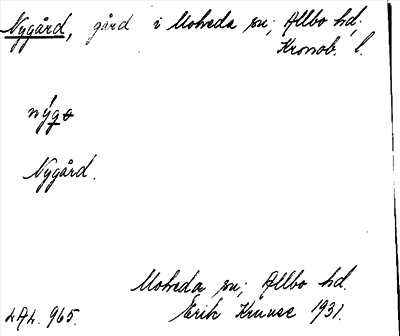 Nygård, gård i Moheda sn; Allbo hd;
Kronob. l.
nýgo
Nygård.
Moheda sn; Allbo hd.
LAL. 965. Erik Kruuse 1931.